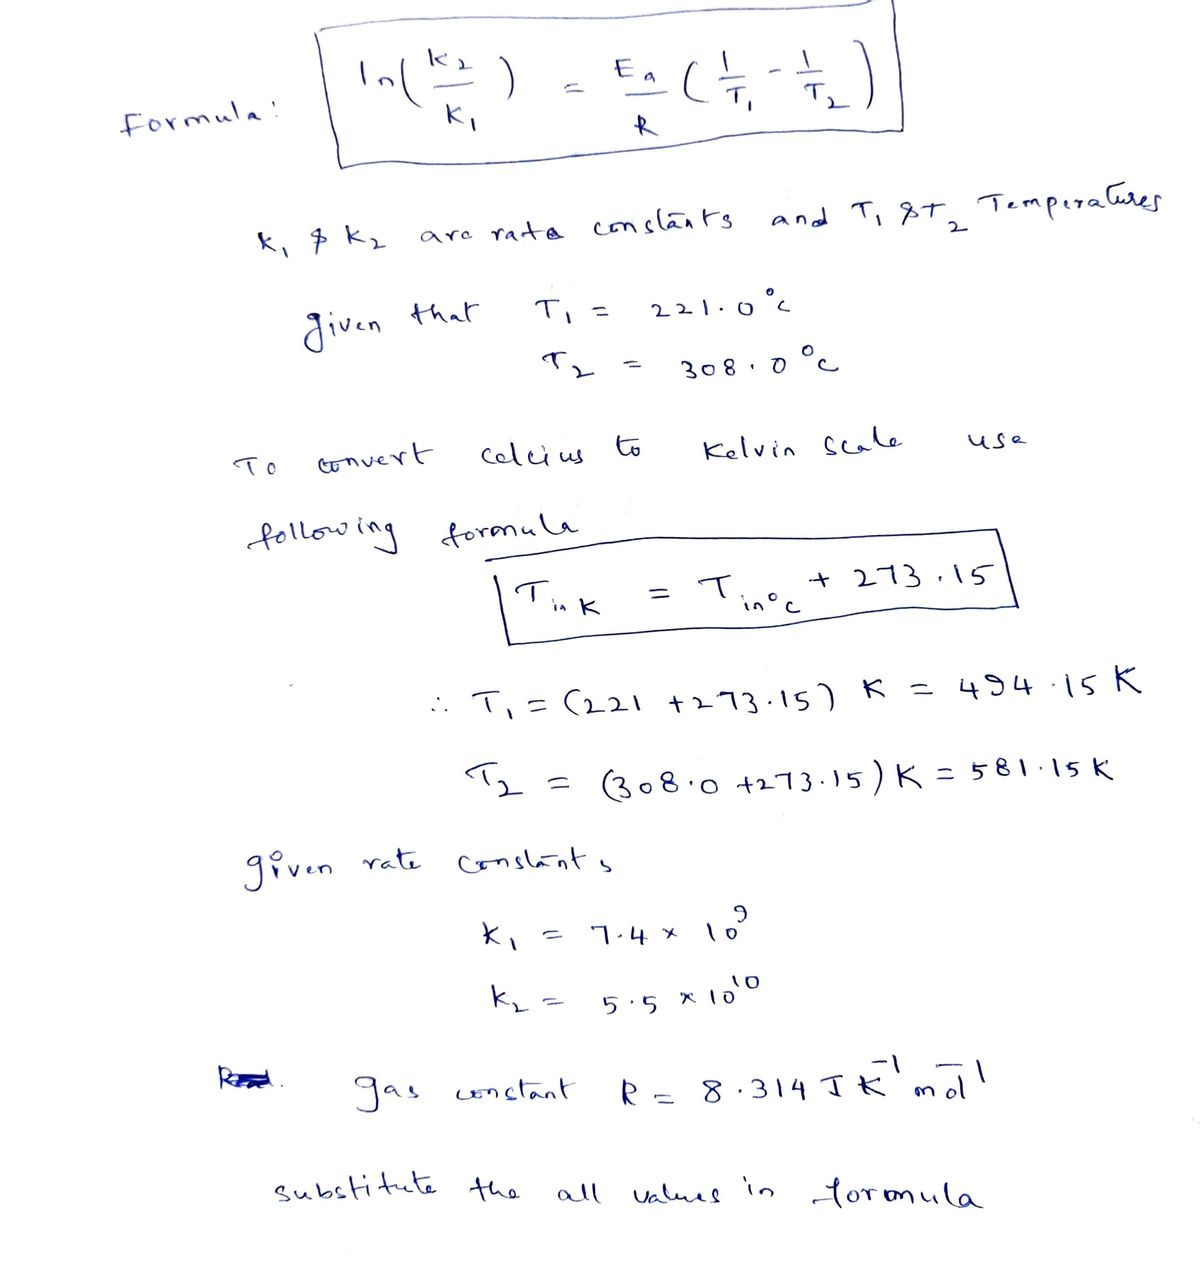 Formula: ln(K2/K1) = Ea/R (1/T1 - 1/T2)
K1 & K2 are rate constants and T1 & T2 Temperatures
given that T1 = 221.0°c
T2 = 308.0°c
To convert celcius to Kelvin scale use
following formula
T in K = T in °c + 273.15
∴ T1 = (221 + 273.15) K = 494.15 K
T2 = (308.0 + 273.15) K = 581.15 K
given rate constants
K1 = 7.4 × 10^9
K2 = 5.5 × 10^10
gas constant R = 8.314 J K^-1 mol^-1
substitute the all values in formula